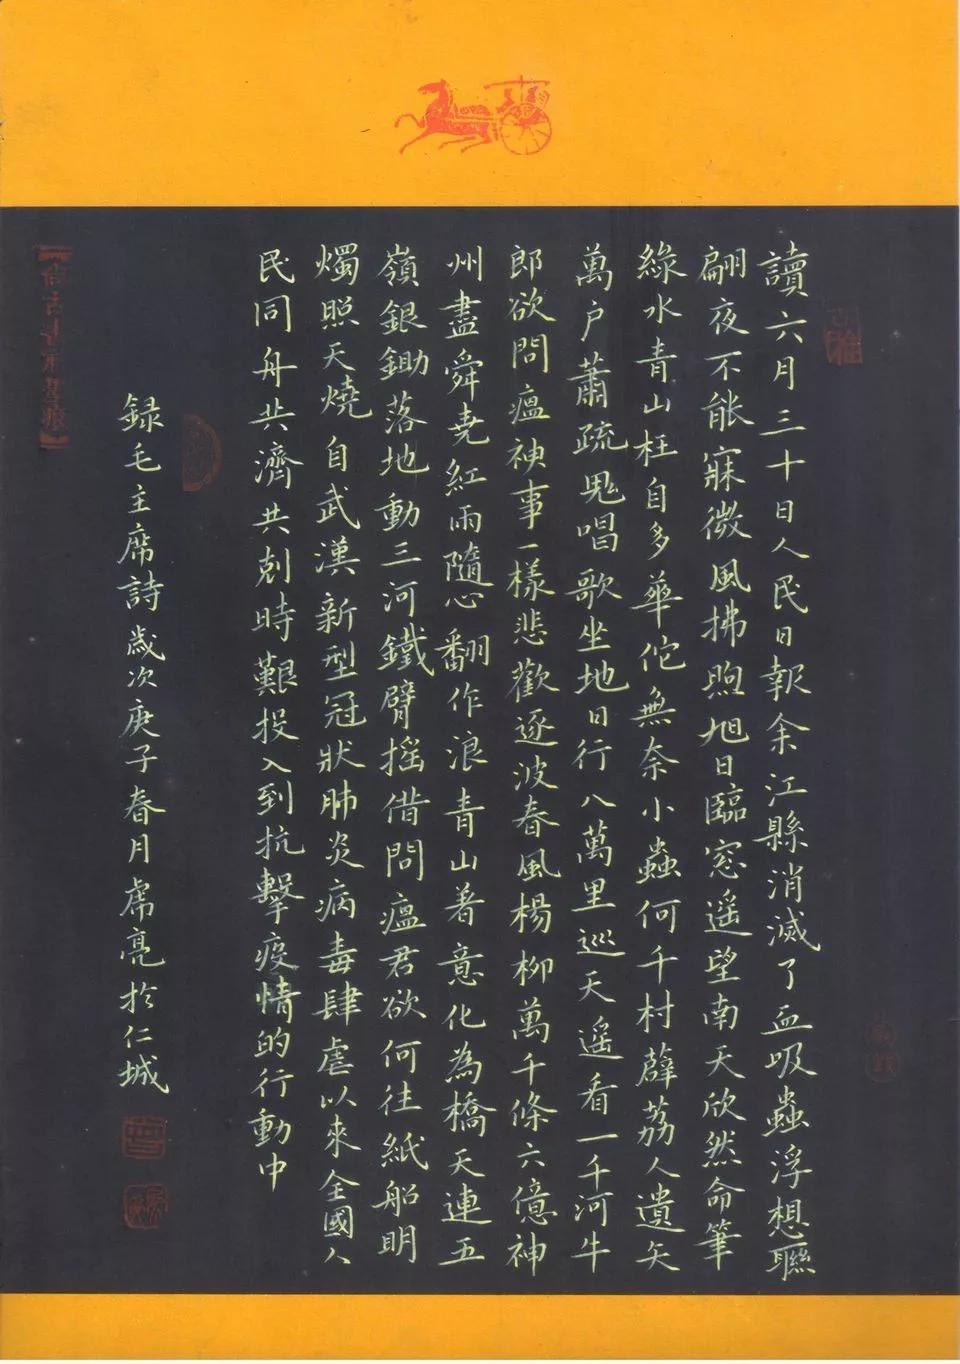 讀六月三十日人民日報余江縣消滅了血吸蟲浮想聯
翩夜不能寐微風拂煦旭日臨窓遥望南天欣然命筆
綠水青山枉自多華佗無奈小蟲何千村薜荔人遺矢
萬户蕭疏鬼唱歌坐地日行八萬里巡天遥看一千河牛
郎欲問瘟神事一樣悲歡逐波春風楊柳萬千條六億神
州盡舜堯紅雨隨心翻作浪青山著意化為橋天連五
嶺銀鋤落地動三河鐵臂摇借問瘟君欲何往紙船明
燭照天燒自武漢新型冠狀肺炎病毒肆虐以來全國人
民同舟共濟共剋時艱投入到抗擊疫情的行動中
録毛主席詩歲次庚子春月席亮於仁城